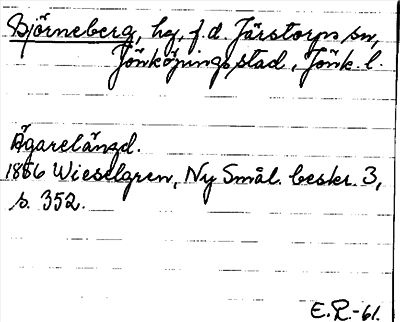 Björneberg, hg, f.d. Järstorps sn,
Jönköpings stad, Jönk. l.
Ägarelängd.
1886 Wieselgren, Ny Smål. beskr. 3,
s. 352.
E.R.-61.